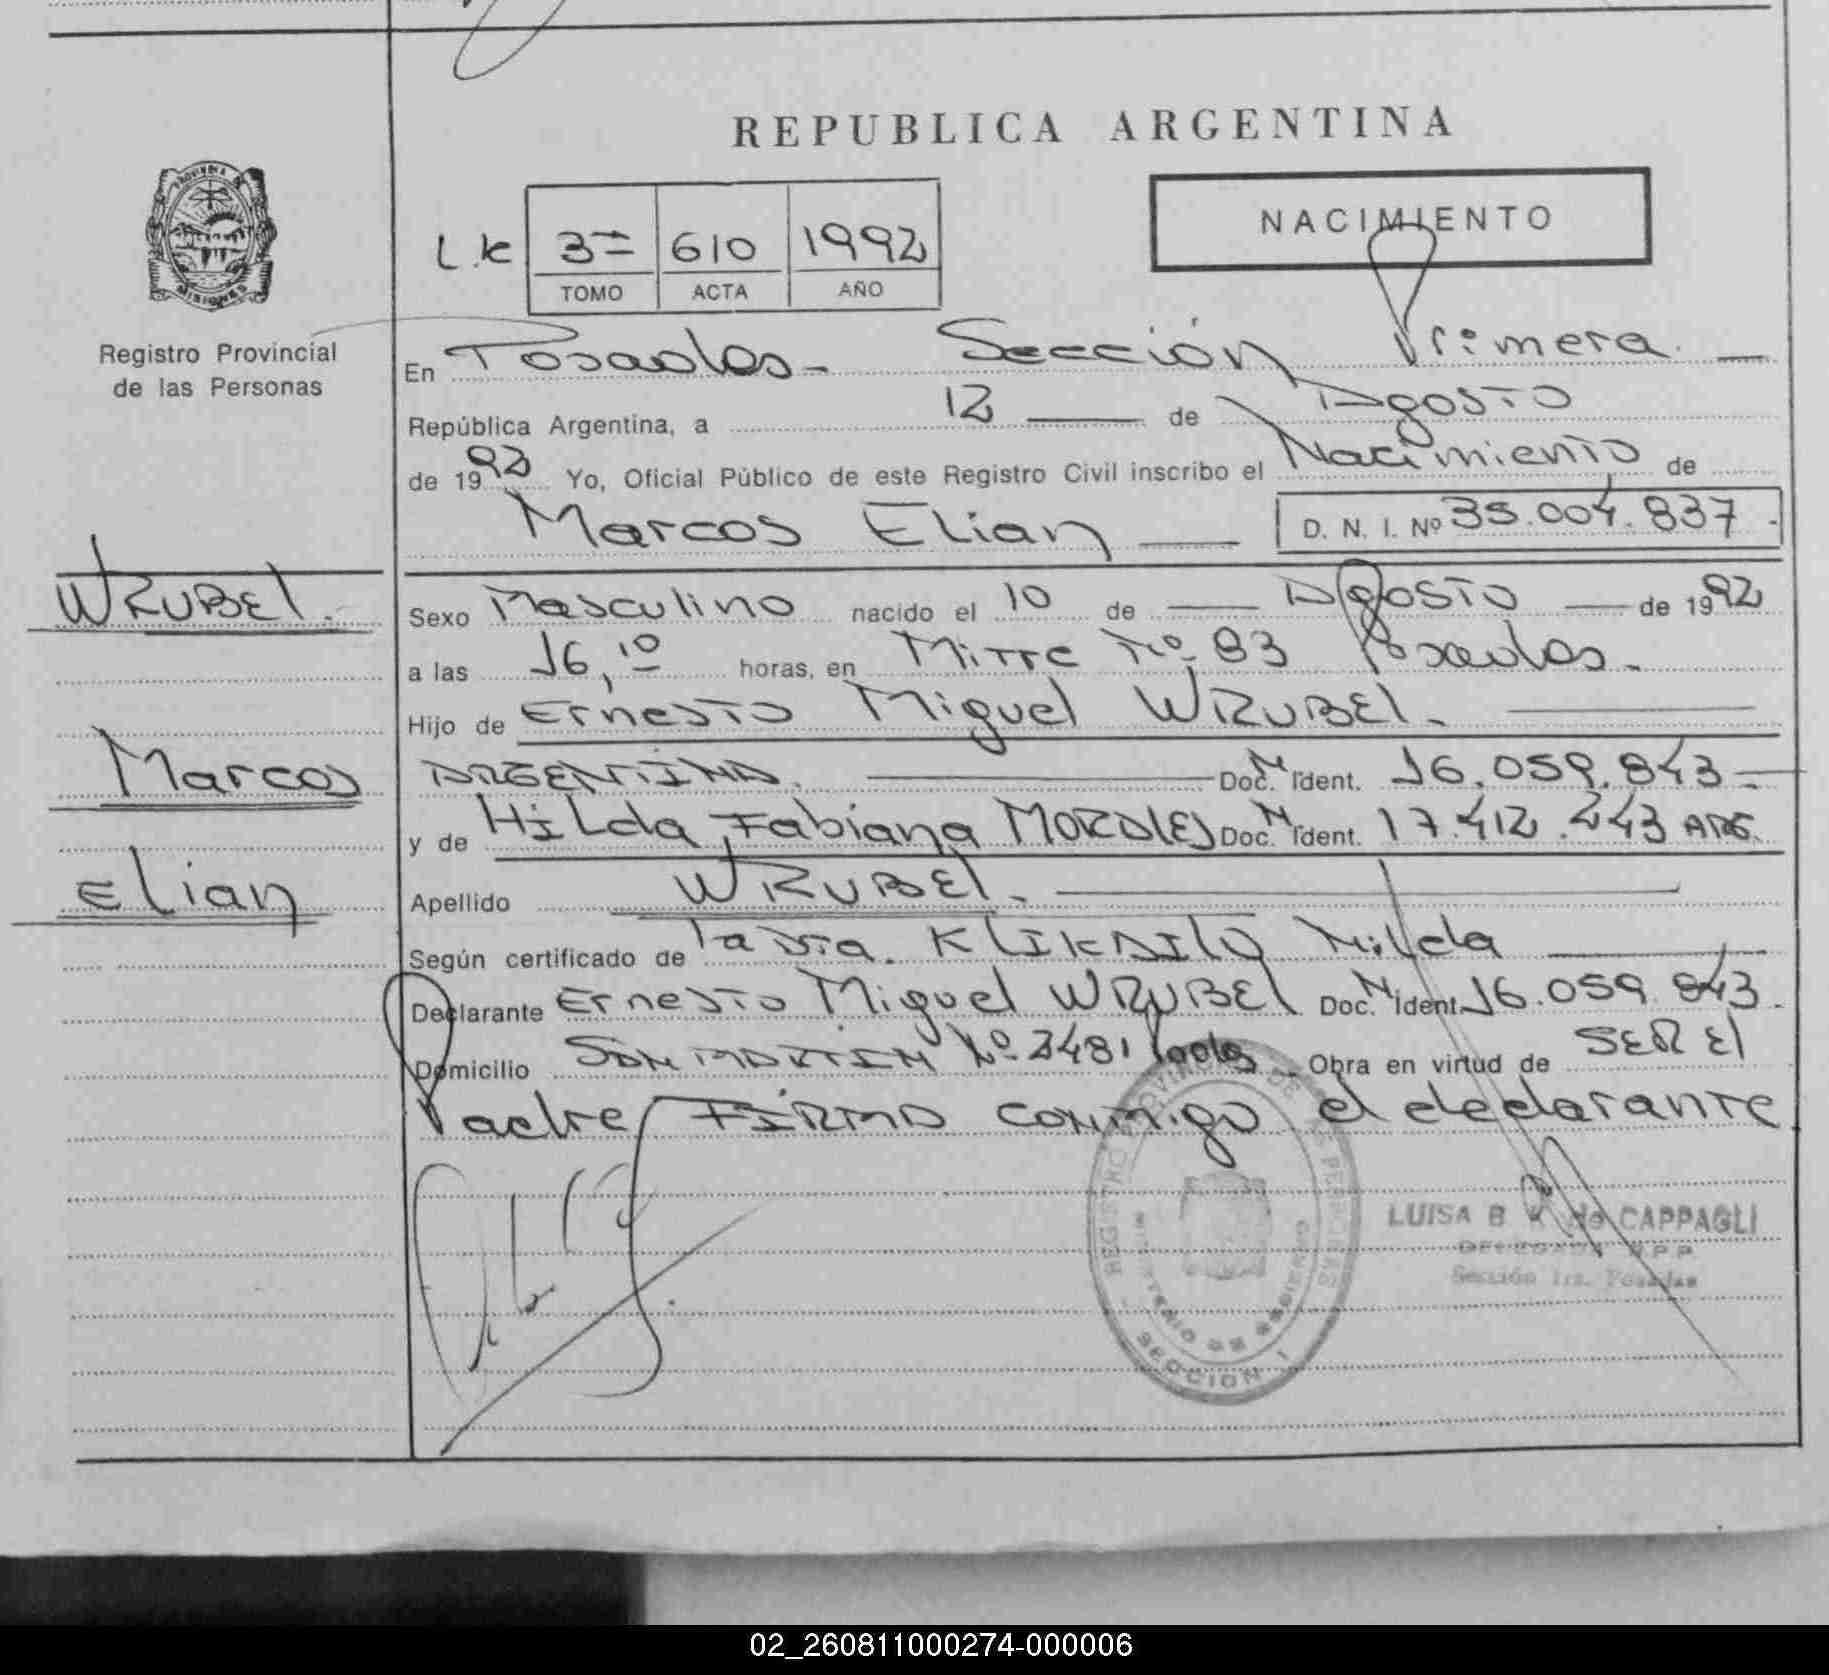 REPUBLICA ARGENTINA
PROVINCIA DE
MISIONES
Registro Provincial
de las Personas
L.K 3= 610 1992
TOMO ACTA AÑO
NACIMIENTO
En Posadas - Sección Primera
República Argentina, a 12 de Agosto
de 1992 Yo, Oficial Público de este Registro Civil inscribo el Nacimiento de
Marcos Elian D. N. I. Nº 35.004.837.
WRUBEL.
Sexo Masculino nacido el 10 de Agosto de 1992
a las 16,10 horas, en Mitre Nº 83 Posadas.
Hijo de Ernesto Miguel WRUBEL.
Marcos
ARGENTINA. Doc. N Ident. 16.059.843
y de Hilda Fabiana MORALES Doc. N Ident. 17.412.243 ARG.
Elian
Apellido WRUBEL.
Según certificado de la Dra. Nilda
Declarante Ernesto Miguel WRUBEL Doc. N Ident. 16.059.843.
Domicilio SAN MARTIN Nº 2481 Pdas Obra en virtud de SER El
Padre FIRMA conmigo el declarante
REGISTRO PROVINCIAL DE LAS PERSONAS
MINISTERIO DE GOBIERNO
SECCION 1
LUISA B de CAPPAGLI
DELEGADA R.P.P.
Sección 1ra. Posadas
02_260811000274-000006